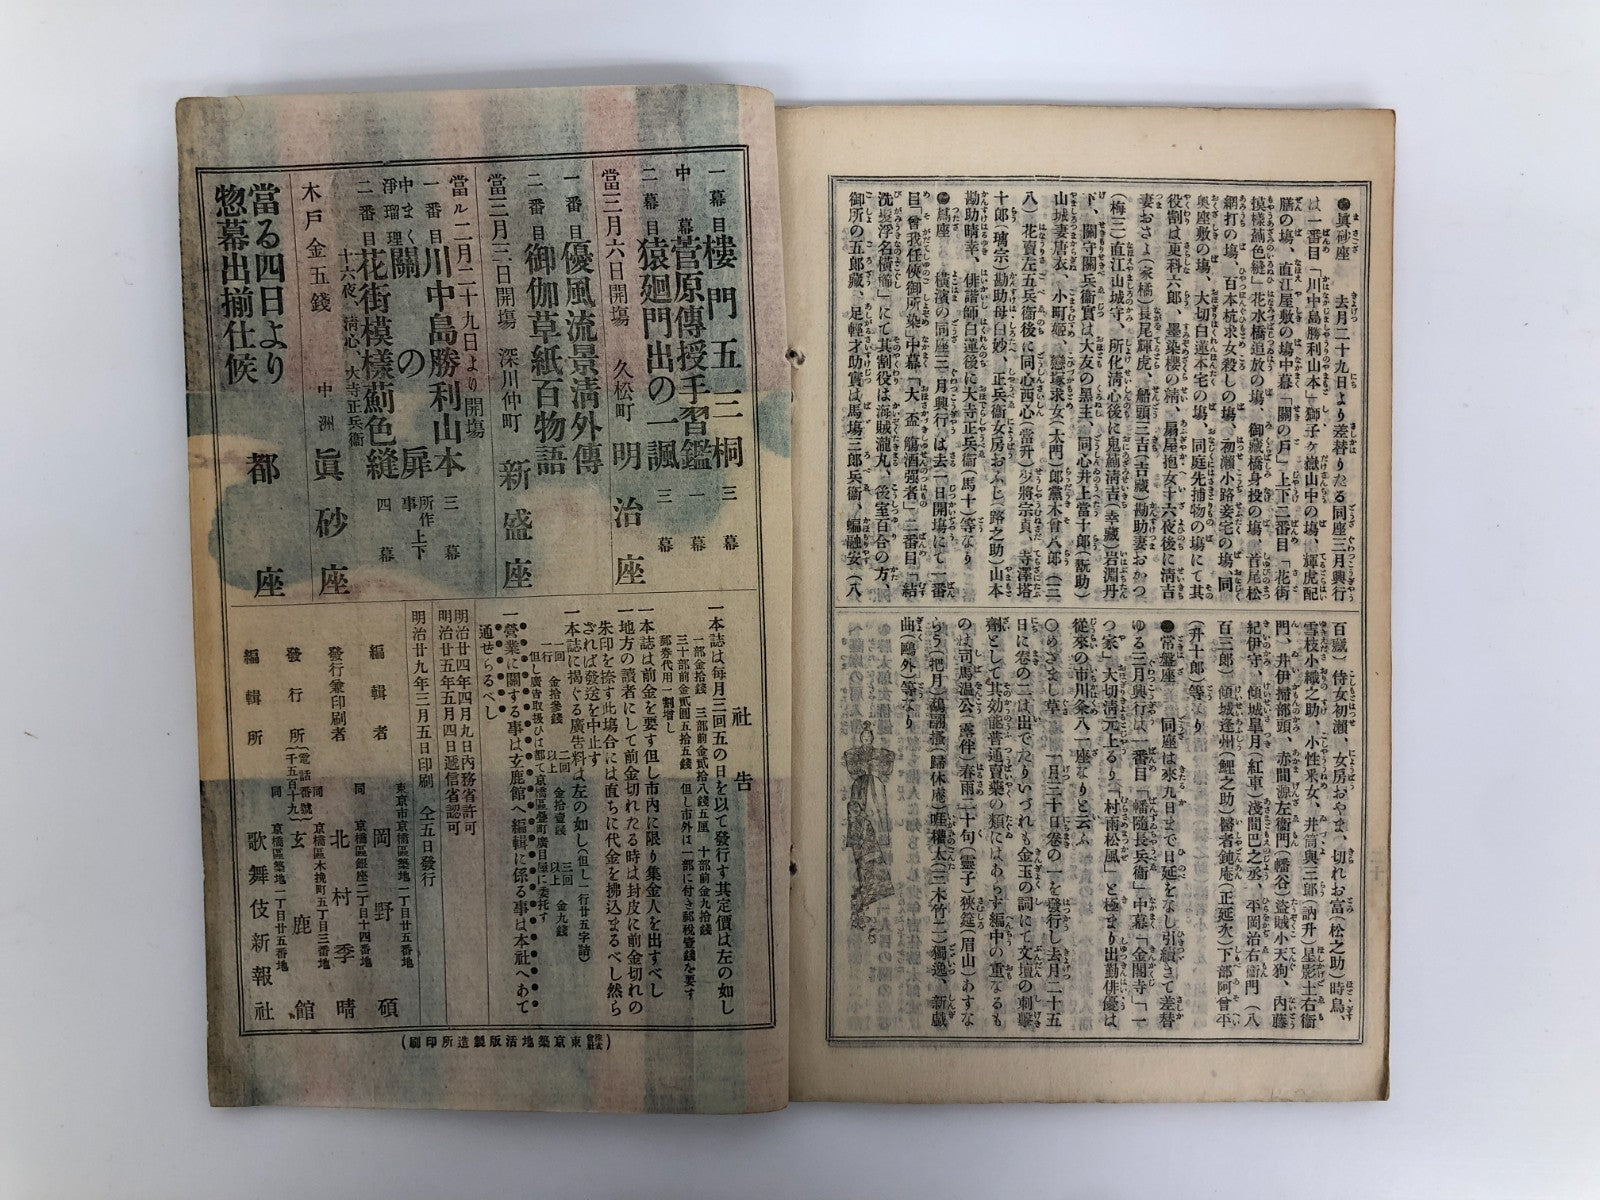 ●眞砂座 去月二十九日より差替りたる同座三月興行
は一番目「川中島勝利山本」獅子ヶ嶽山中の塲、輝虎配
膳の塲、直江屋敷の塲中幕「關の戸」上下二番目「花街
摸樣薊色縫」花水橋追放の塲、御藏橋身投の塲、首尾松
網打の塲、百本杭求女殺しの塲、初瀬小路妾宅の塲、同
奥座敷の塲、大切白蓮本宅の塲、同庭先捕物の塲にて其
役割は更科六郎、墨染櫻の精、扇屋抱女十六夜後に清吉
妻おさよ(家橘)長尾輝虎、船頭三吉(吉藏)勘助妻おかつ
(梅三)直江山城守、所化清心後に鬼薊清吉(幸藏)岩淵丹
下、關守關兵衞實は大友の黒主、同心井上當十郎(翫助)
山城妻唐衣、小町姫、戀塚求女(太門)郎黨木曾八郎(三
八)花賣左五兵衞後に同心西心(當升)少將宗貞、寺澤塔
十郎(璃宗)勘助母白妙、正兵衞女房おふじ(路之助)山本
勘助晴幸、俳諧師白蓮後に大寺正兵衞(馬十)等なり
●蔦座 横濱の同座三月興行は去一日開塲にて一番
目「曾我任俠御所染」中幕「大盃觴酒强者」二番目「結
洗髮浮名横櫛」にて其割役は海賊瀧丸、後室百合の方、
御所の五郎藏、足輕才助實は馬塲三郎兵衞、蝙融安(八
百藏)侍女初瀬、女房おやま、切れお富(松之助)時鳥、
雪枝小織之助、小性釆女、井筒與三郎(訥升)星影土右衞
門、井伊掃部頭、赤間源左衞門(幡谷)盗賊小天狗、内藤
紀伊守、傾城皐月(紅車)淺間巴之丞、平岡治右衞門(八
百三郎)傾城逢州(鯉之助)醫者鈍庵(正延次)下部阿曾平
(升十郎)等なり
●常盤座 同座は來九日まで日延をなし引續きて差替
ゆる三月興行は、一番目「幡隨長兵衞」中幕「金閣寺」「一
つ家」大切清元上るり「村雨松風」と極まり出勤俳優は
從來の市川粂八一座なりと云ふ
○めざまし草 一月三十日卷の一を發行し去月二十五
日に卷の二は出でたりいづれも金玉の詞にて文壇の刺撃
劑として其効能普通賣藥の類にはあらず編中の重なるも
のは司馬温公(露伴)春雨二十句(靈子)狹筵(眉山)あすな
らう(把月)鸚鵡搔(歸休庵)唯權太(三木竹二)獨逸、新戲
曲(鷗外)等なり
一幕目 樓門五三桐 三幕
中幕 菅原傳授手習鑑 一幕
二幕目 猿廻門出の一諷 三幕
當三月六日開塲 久松町 明治座
一番目 優風流景清外傳
二番目 御伽草紙百物語
當三月三日開塲 深川仲町 新盛座
當ル二月二十九日より開塲
一番目 川中島勝利山本 三幕
中まく淨瑠理 關の扉 所作事上下
二番目 花街模樣薊色縫 四幕
十六夜、清心、大寺正兵衞
木戸金五錢 中洲 眞砂座
當る四日より
惣幕出揃仕候 都座
社告
一本誌は毎月三回五の日を以て發行す其定價は左の如し
一部金拾錢 三部前金貳拾八錢五厘 十部前金九拾錢
三十部前金貳圓五拾五錢 但し市外は一部に付き郵税壹錢を要す
郵券代用一割增し
一本誌は前金を要す但し市内に限り集金人を出すべし
一地方の讀者にして前金切れたる時は封皮に前金切れの
朱印を捺す此塲合には直ちに代金を拂込まるべし然ら
ざれば發送を中止す
一本誌に揭ぐる廣告料は左の如し(但し一行廿五字詰)
一回一行 金拾參錢 二回以上 金拾壹錢 三回以上 金九錢
但し廣告取扱ひは都て京橋區疊町廣目屋に委托す
一營業に關する事は玄鹿館へ編輯に係る事は本社へあて
通せらるべし
明治廿四年四月九日内務省許可
明治廿五年五月四日遞信省認可
明治廿九年三月五日印刷 仝五日發行
編輯者 東京市京橋區築地一丁目廿五番地 岡野碩
發行兼印刷者 同 京橋區銀座二丁目十四番地 北村季晴
發行所 (電話番號千五百十九) 同 京橋區木挽町五丁目三番地 玄鹿館
編輯所 同 京橋區築地一丁目廿五番地 歌舞伎新報社
(株式會社東京築地活版製造所印刷)